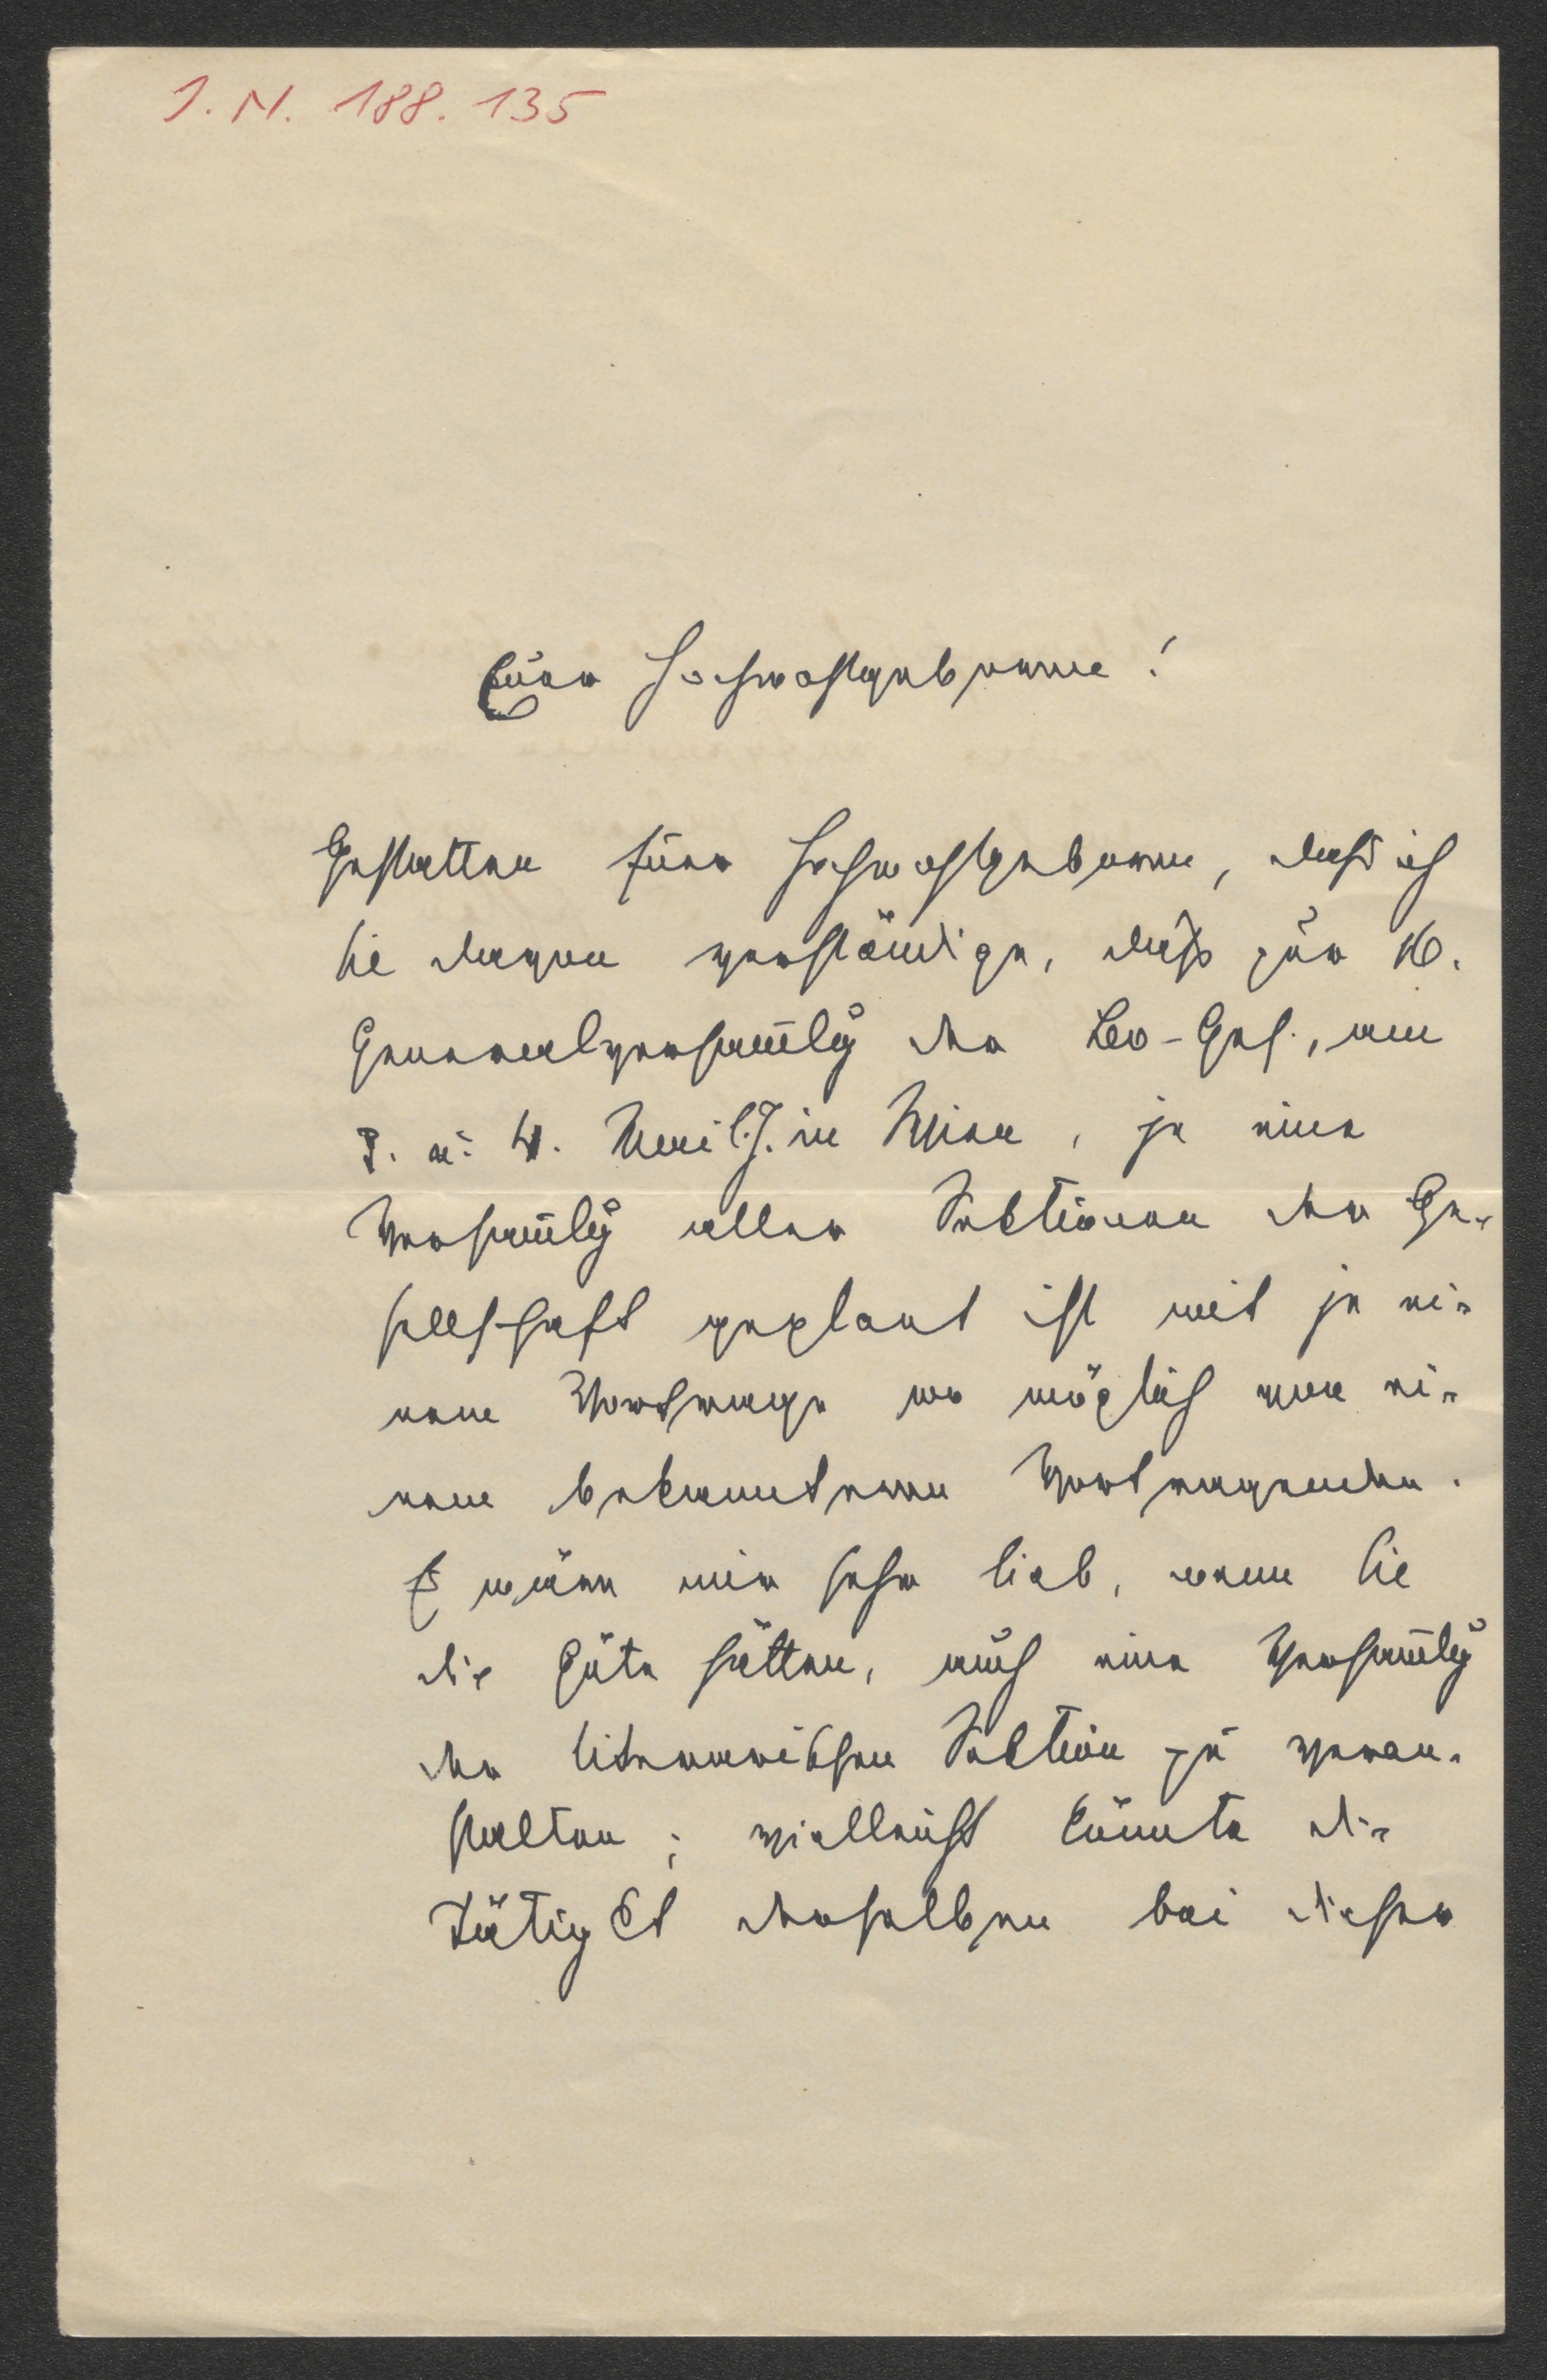 I. N. 188.135
Euer Hochwohlgeboren!
Gestatten Euer Hochwohlgeboren, daß ich
Sie davon verständige, daß zur 16.
Generalversam̄lg der Leo-Ges., am
3. u. 4. Mai l. J. in Wien, je eine
Versam̄lg aller Sektionen der Ge-
sellschaft geplant ist mit je ei-
nem Vortrage wo möglich von ei-
nem bekannteren Vortragenden.
Es wäre mir sehr lieb, wenn Sie
die Güte hätten, auch eine Versam̄lg
der literarischen Sektion zu veran-
stalten; vielleicht könnte die
Tätigkt derselben bei dieser